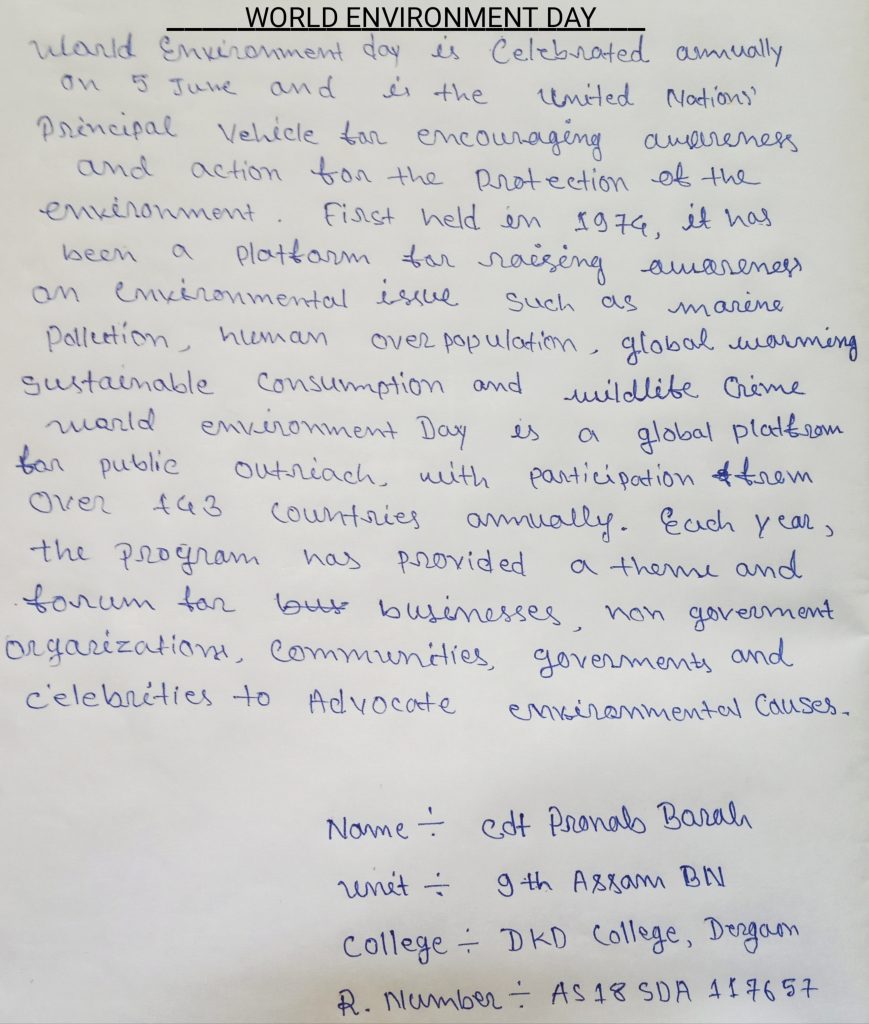 WORLD ENVIRONMENT DAY
World Environment day is Celebrated annually
on 5 June and is the United Nations'
Principal Vehicle for encouraging awareness
and action for the Protection of the
environment. First held in 1974, it has
been a platform for raising awareness
on environmental issue such as marine
Pollution, human over population, global warming
sustainable consumption and wildlife Crime
world environment Day is a global platfrom
for public outriach, with participation from
Over 143 countries annually. Each year,
the program has provided a theme and
forum for bus businesses, non goverment
organizations, communities, goverments and
celebrities to Advocate environmental Causes.
Name ÷ cdt Pranab Barah
unit ÷ 9th Assam BN
College ÷ DKD College, Dergaon
R. Number ÷ AS18 SDA 117657